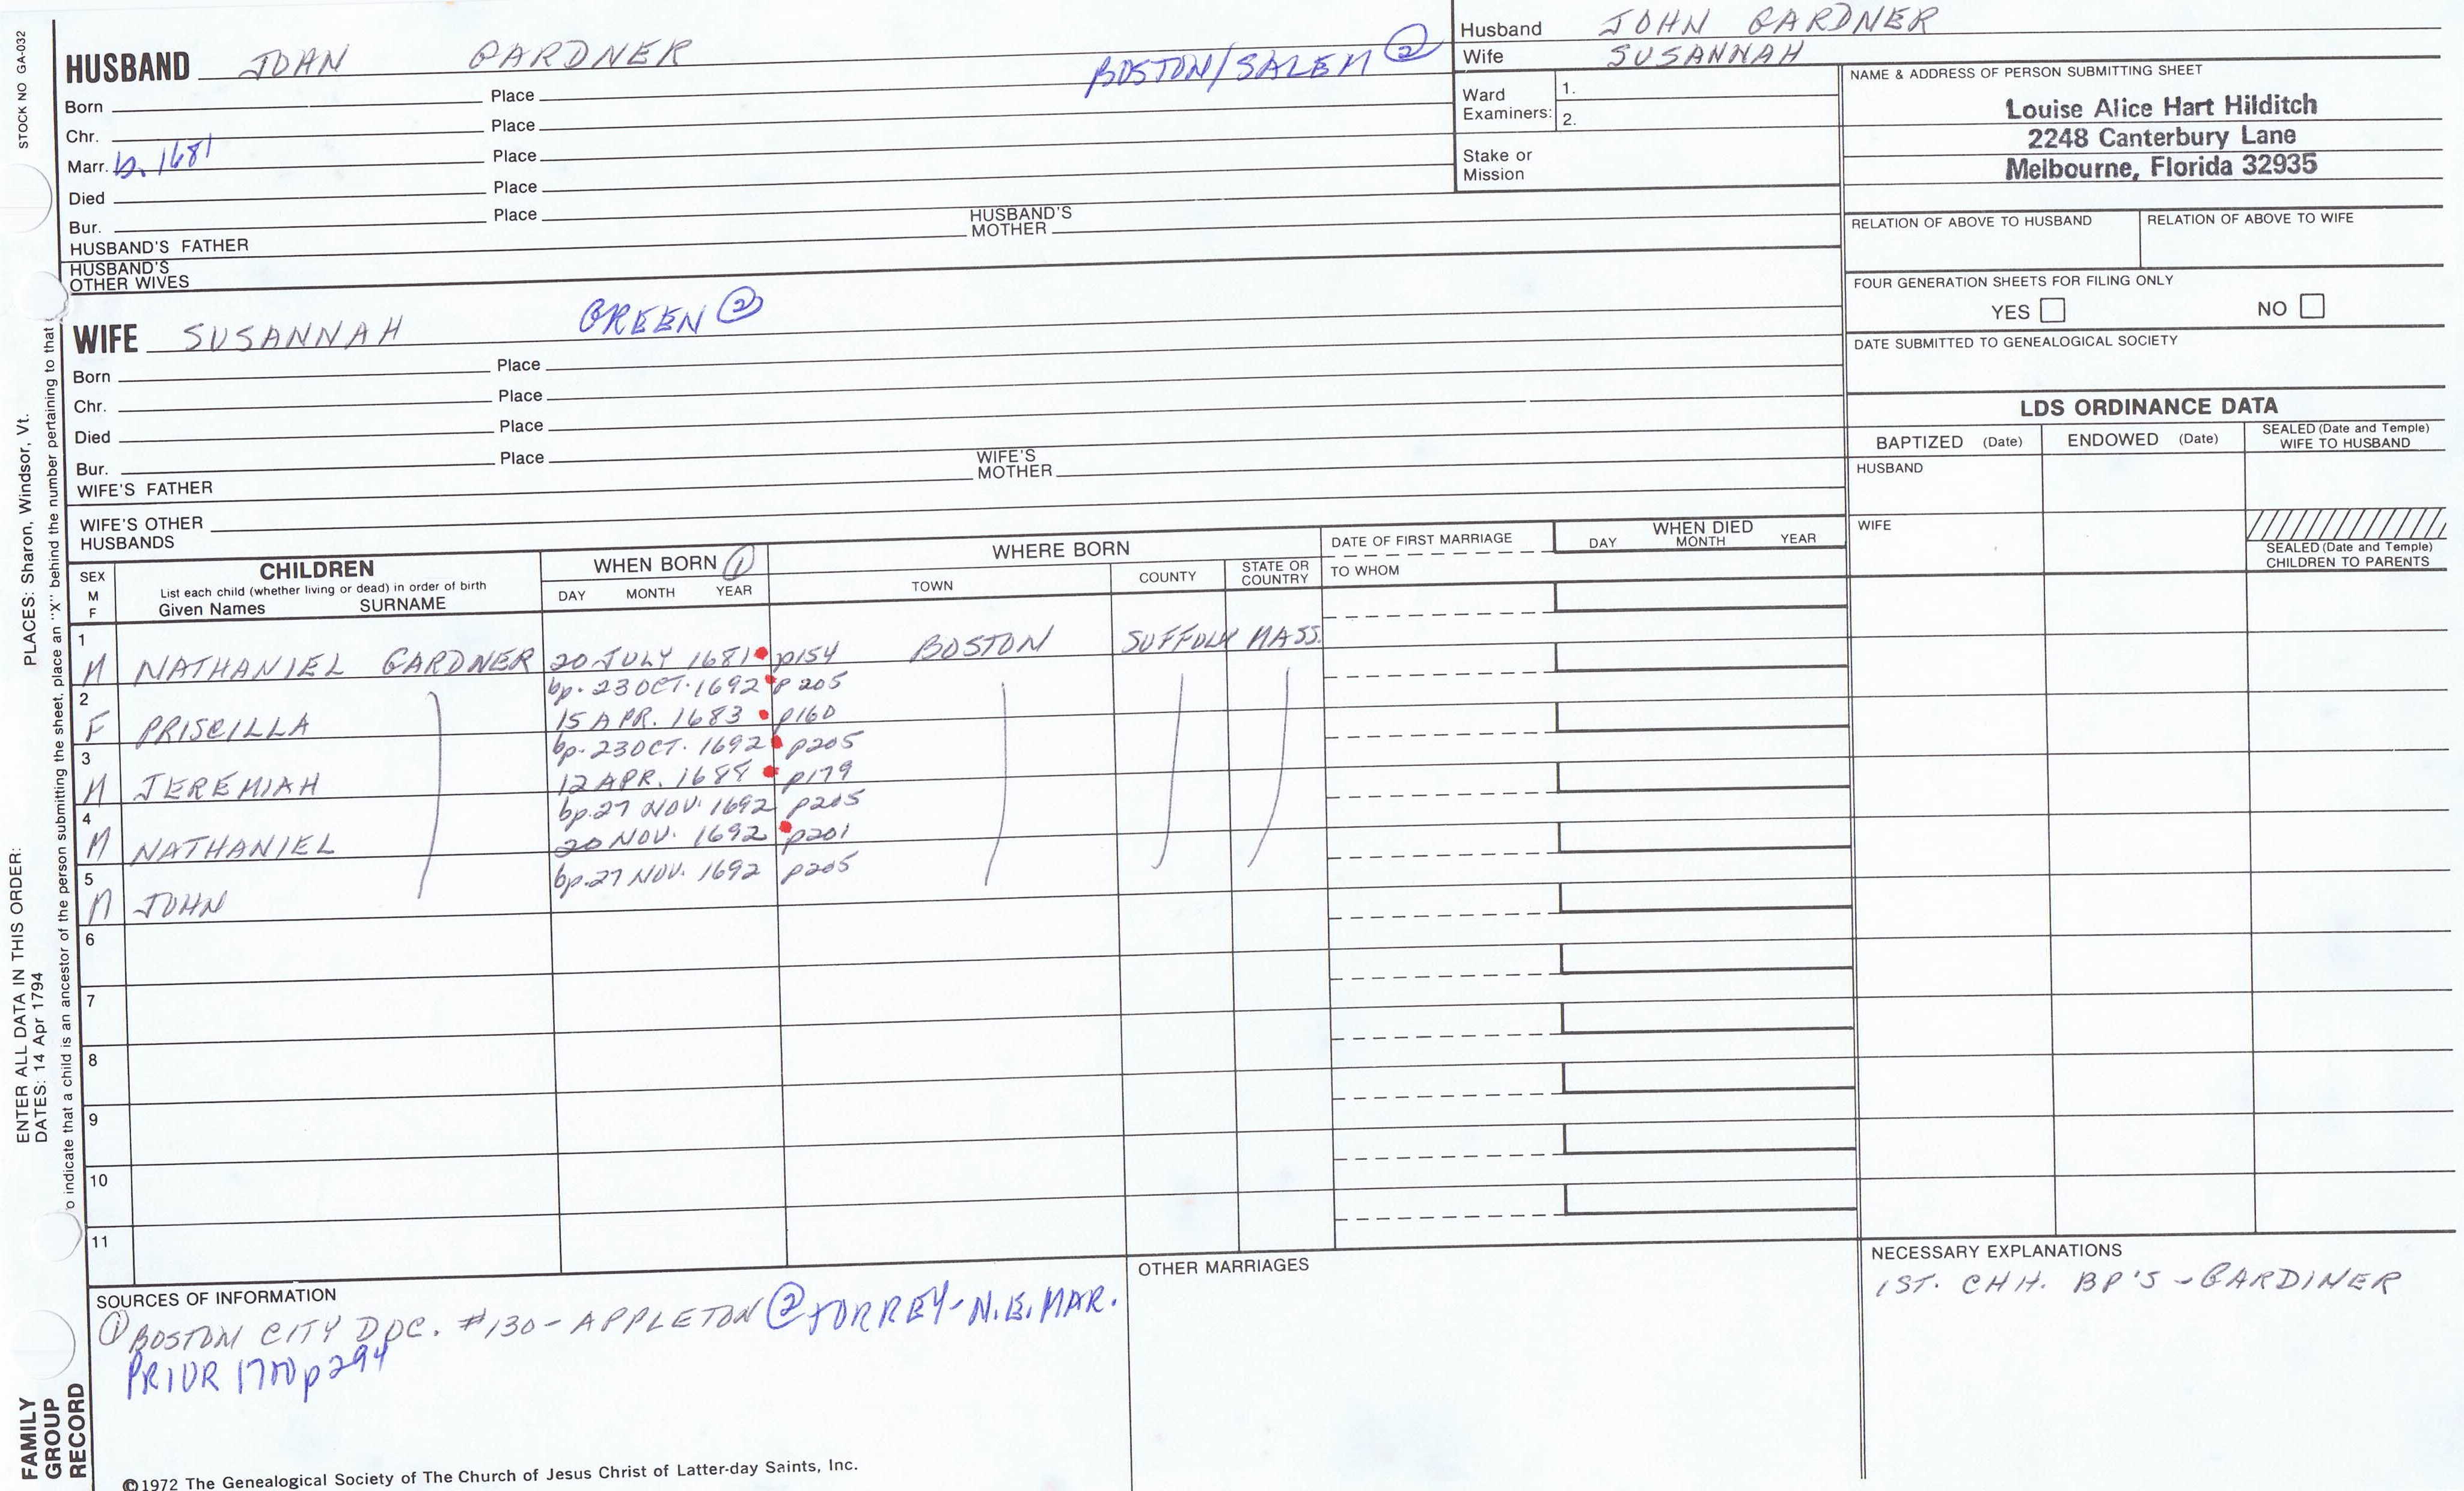 STOCK NO GA-032
PLACES: Sharon, Windsor, Vt.
ENTER ALL DATA IN THIS ORDER:
DATES: 14 Apr 1794
o indicate that a child is an ancestor of the person submitting the sheet, place an "X" behind the number pertaining to that
FAMILY
GROUP
RECORD
HUSBAND JOHN GARDNER BOSTON/SALEM ②
Born Place
Chr. Place
Marr. b. 1681 Place
Died Place
Bur. Place
HUSBAND'S FATHER HUSBAND'S MOTHER
HUSBAND'S
OTHER WIVES
WIFE SUSANNAH GREEN ②
Born Place
Chr. Place
Died Place
Bur. Place
WIFE'S FATHER WIFE'S MOTHER
WIFE'S OTHER
HUSBANDS
Husband JOHN GARDNER
Wife SUSANNAH
Ward
Examiners:
1.
2.
Stake or
Mission
NAME & ADDRESS OF PERSON SUBMITTING SHEET
Louise Alice Hart Hilditch
2248 Canterbury Lane
Melbourne, Florida 32935
RELATION OF ABOVE TO HUSBAND RELATION OF ABOVE TO WIFE
FOUR GENERATION SHEETS FOR FILING ONLY
YES NO
DATE SUBMITTED TO GENEALOGICAL SOCIETY
LDS ORDINANCE DATA
BAPTIZED (Date) ENDOWED (Date) SEALED (Date and Temple)
WIFE TO HUSBAND
HUSBAND
WIFE
SEALED (Date and Temple)
CHILDREN TO PARENTS
SEX
M
F
CHILDREN
List each child (whether living or dead) in order of birth
Given Names SURNAME
WHEN BORN ①
DAY MONTH YEAR
WHERE BORN
TOWN COUNTY STATE OR
COUNTRY
DATE OF FIRST MARRIAGE
TO WHOM
WHEN DIED
DAY MONTH YEAR
1
M NATHANIEL GARDNER 20 JULY 1681 p154 BOSTON SUFFOLK MASS.
2 bp. 23 OCT. 1692 p205
F PRISCILLA 15 APR. 1683 p160
3 bp. 23 OCT. 1692 p205
M JEREMIAH 12 APR. 1688 p179
4 bp. 27 NOV. 1692 p205
M NATHANIEL 20 NOV. 1692 p201
5 bp. 27 NOV. 1692 p205
M JOHN
6
7
8
9
10
11
SOURCES OF INFORMATION
① BOSTON CITY DOC. #130 - APPLETON ② TORREY - N.E. MAR.
PRIOR 1700 p294
OTHER MARRIAGES
NECESSARY EXPLANATIONS
1ST. CHH. BP'S - GARDINER
©1972 The Genealogical Society of The Church of Jesus Christ of Latter-day Saints, Inc.